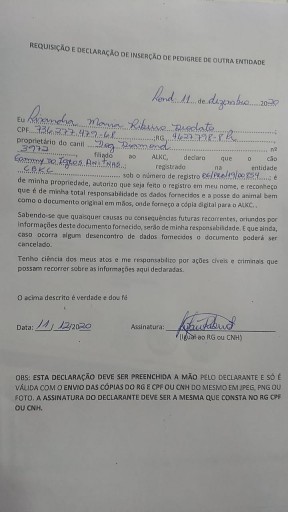 REQUISIÇÃO E DECLARAÇÃO DE INSERÇÃO DE PEDIGREE DE OUTRA ENTIDADE
11 de dezembro 2020
Eu
CPF 736.277.479-68, RG 4627798-8
proprietário do canil Dog Diamond nº
3972 filiado ao ALKC, declaro que o cão
registrado na entidade
CBKC sob o número de registro é
de minha propriedade, autorizo que seja feito o registro em meu nome, e reconheço
que é de minha total responsabilidade os dados fornecidos e a posse do animal bem
como o documento original em mãos, onde forneço a cópia digital para o ALKC..
Sabendo-se que quaisquer causas ou consequências futuras recorrentes, oriundos por
informações deste documento fornecido, serão de minha responsabilidade. E que ainda,
caso ocorra algum desencontro de dados fornecidos o documento poderá ser
cancelado.
Tenho ciência dos meus atos e me responsabilizo por ações cíveis e criminais que
possam recorrer sobre as informações aqui declaradas.
O acima descrito é verdade e dou fé
Data: 11/12/2020 Assinatura:
(Igual ao RG ou CNH)
OBS: ESTA DECLARAÇÃO DEVE SER PREENCHIDA A MÃO PELO DECLARANTE E SÓ É
VÁLIDA COM O ENVIO DAS CÓPIAS DO RG E CPF OU CNH DO MESMO EM JPEG, PNG OU
FOTO. A ASSINATURA DO DECLARANTE DEVE SER A MESMA QUE CONSTA NO RG CPF
OU CNH.